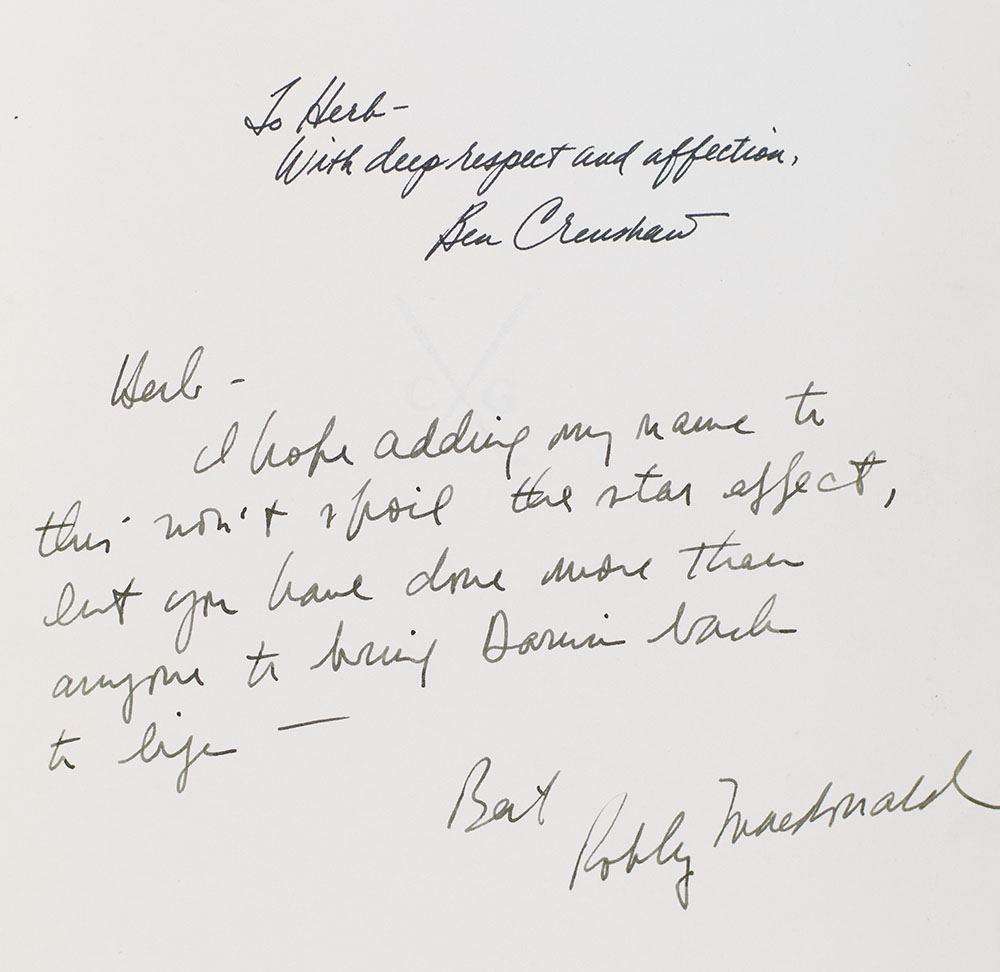 To Herb-
With deep respect and affection,
Ben Crenshaw
C G
Herb -
I hope adding my name to
this won't spoil the star effect,
but you have done more than
anyone to bring Darwin back
to life —
Best
Robby Macdonald